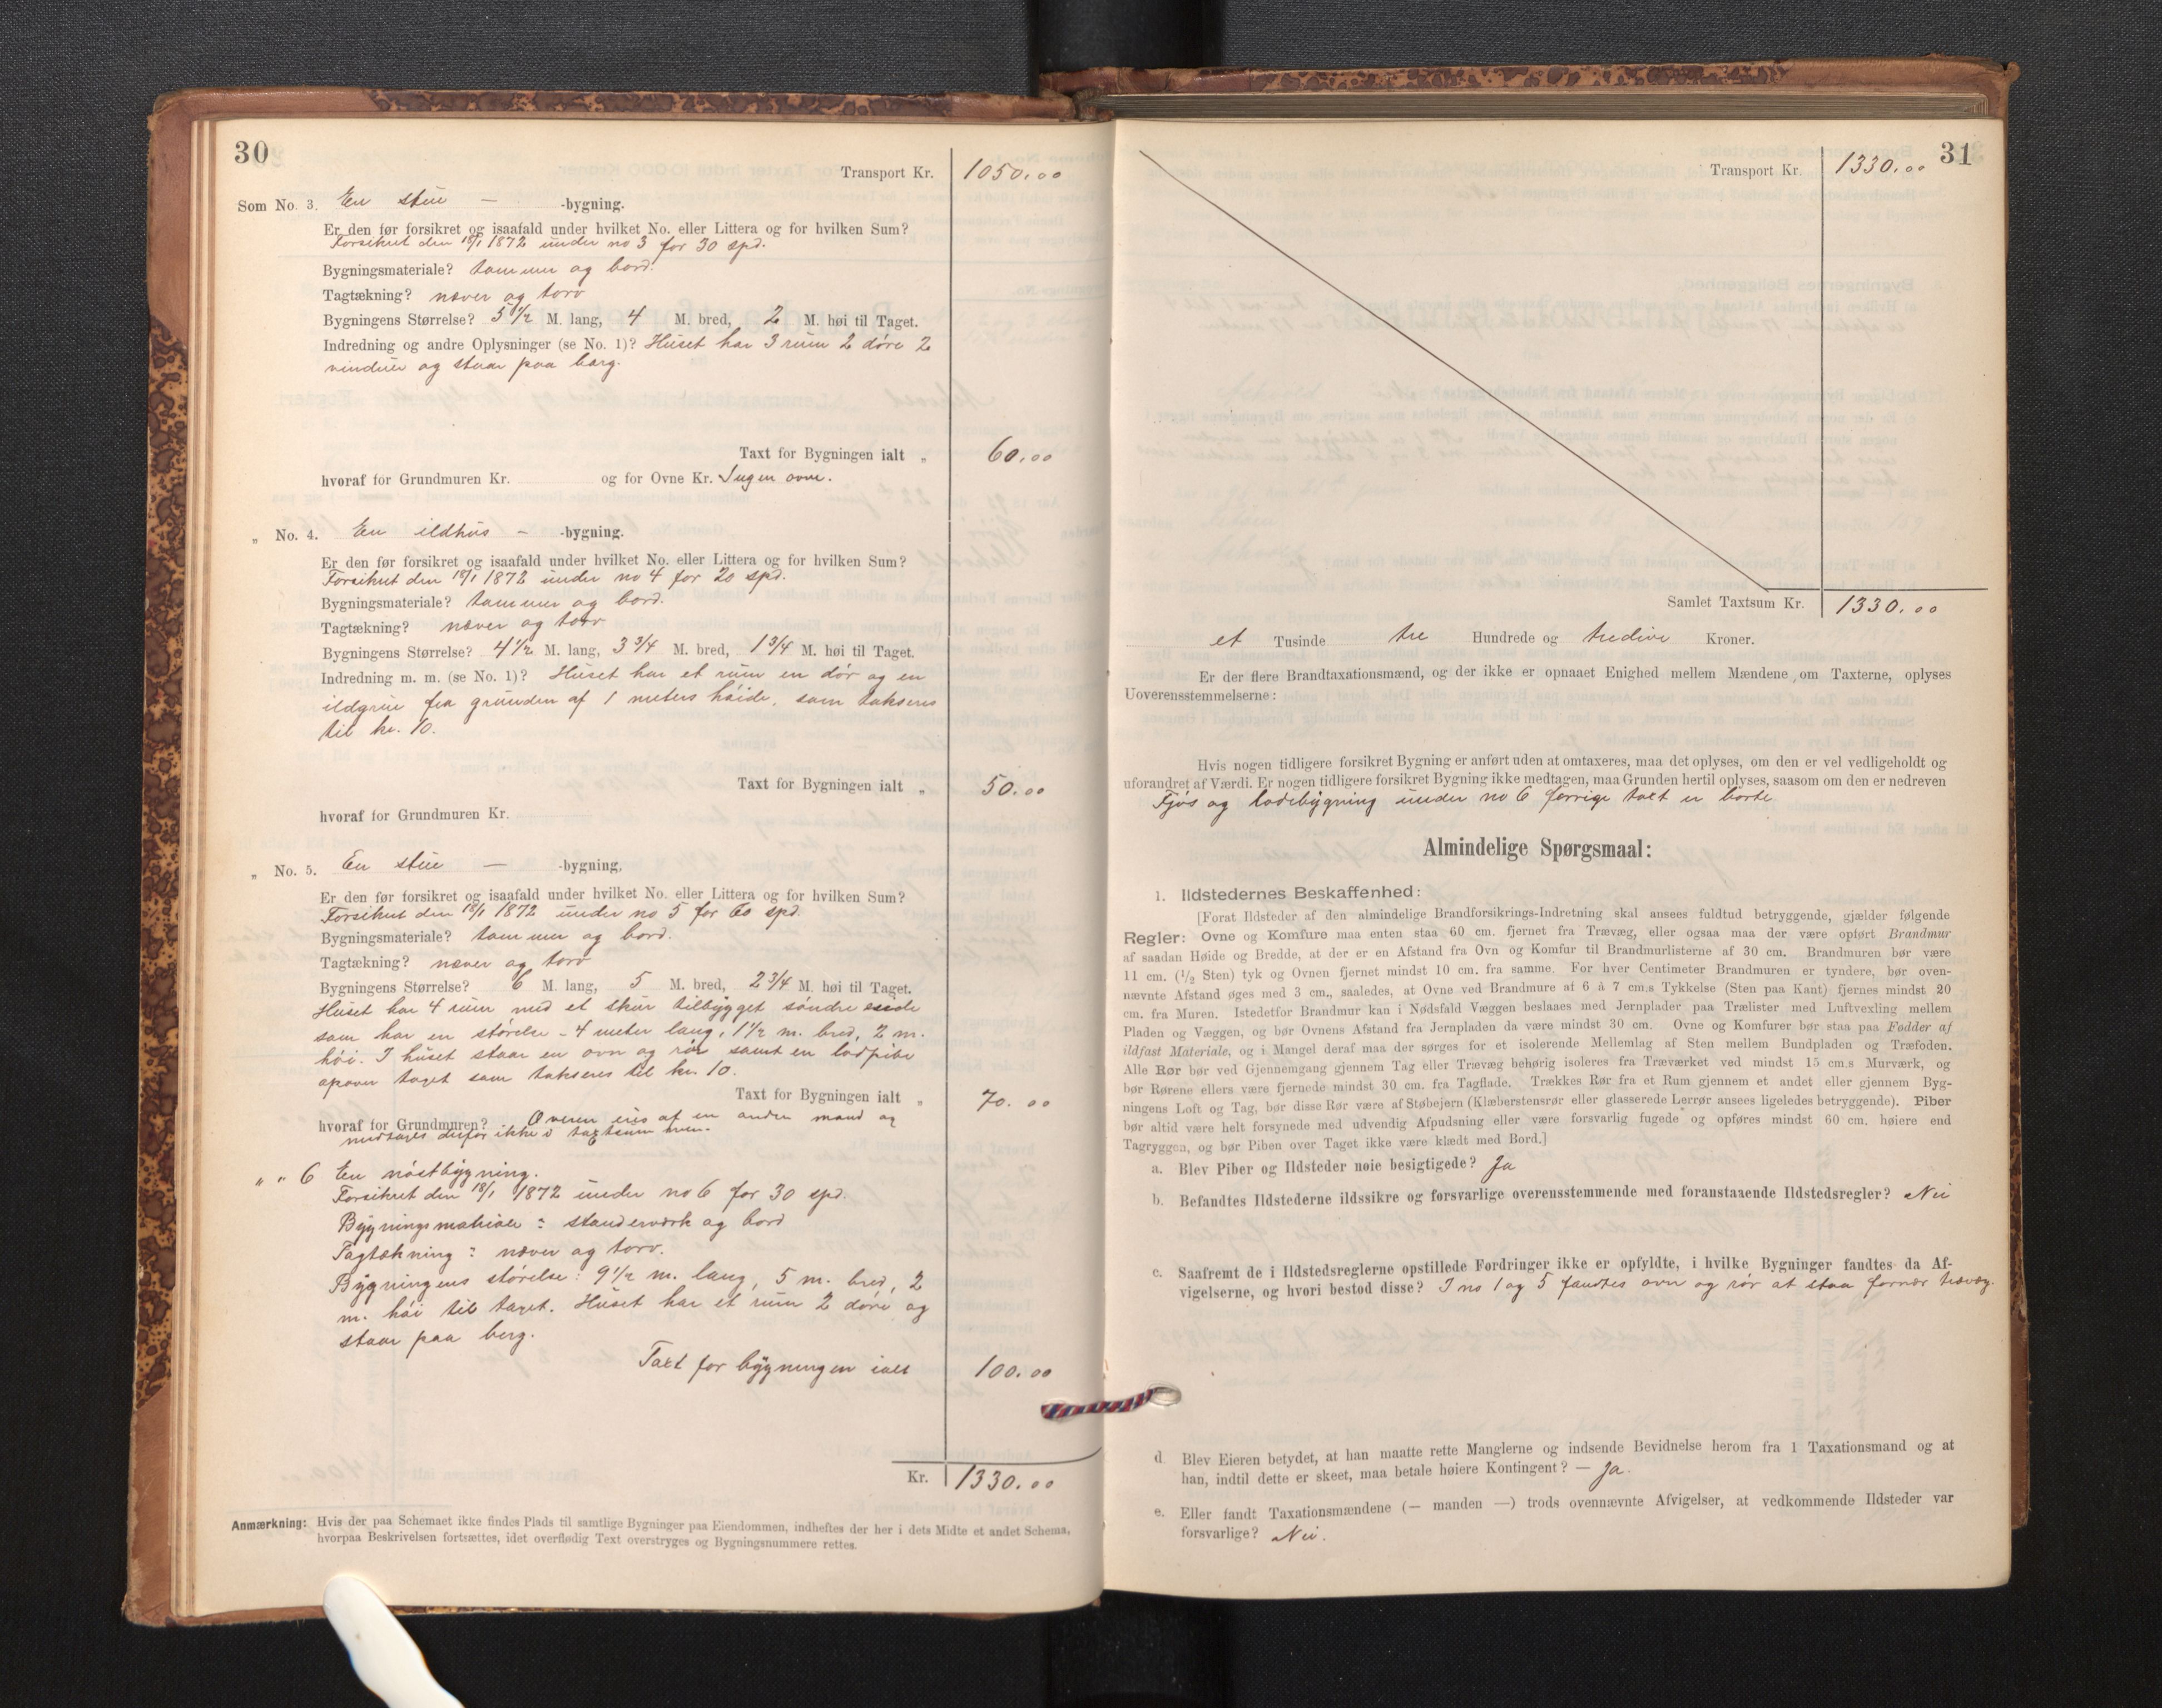 30
Transport Kr. 1050.00
Som No. 3. En stue — -bygning.
Er den før forsikret og isaafald under hvilket No. eller Littera og for hvilken Sum?
Forsikret den 18/1 1872 under no 3 for 30 spd.
Bygningsmateriale? tømmer og bord.
Tagtækning? næver og torv
Bygningens Størrelse? 5 1/2 M. lang, 4 M. bred, 2 M. høi til Taget.
Indredning og andre Oplysninger (se No. 1)? Huset har 3 rum 2 døre 2
vinduer og staar paa barg.
Taxt for Bygningen ialt „ 60.00
hvoraf for Grundmuren Kr. og for Ovne Kr. Ingen ovn.
„ No. 4. En ildhus — -bygning.
Er den før forsikret og isaafald under hvilket No. eller Littera og for hvilken Sum?
Forsikret den 18/1 1872 under no 4 for 20 spd.
Bygningsmateriale? tømmer og bord.
Tagtækning? næver og torv
Bygningens Størrelse? 4 1/2 M. lang, 3 3/4 M. bred, 1 3/4 M. høi til Taget.
Indredning m. m. (se No. 1)? Huset har et rum en dør og en
ildgrue fra grunden af 1 meters høide, som takseres
til kr. 10.
Taxt for Bygningen ialt „ 50.00
hvoraf for Grundmuren Kr.
„ No. 5. En stue — -bygning,
Er den før forsikret og isaafald under hvilket No. eller Littera og for hvilken Sum?
Forsikret den 18/1 1872 under no 5 for 60 spd.
Bygningsmateriale? tømmer og bord.
Tagtækning? næver og torv
Bygningens Størrelse? 6 M. lang, 5 M. bred, 2 3/4 M. høi til Taget.
Huset har 4 rum med et skur tilbygget søndre side
som har en størelse - 4 meter lang, 1 1/2 m. bred, 2 m.
høi. I huset staar en ovn og rør samt en lodpibe
opover taget som takseres til kr. 10.
Taxt for Bygningen ialt „ 70.00
hvoraf for Grundmuren? Ovnen eies af en anden mand og
medtages derfor ikke i taxtsummen.
„ „ 6 En nøstbygning.
Forsikret den 18/1 1872 under no 6 for 30 spd.
Bygningsmateriale: standerværk og bord
Tagtækning: næver og torv.
Bygningens størelse: 9 1/2 m. lang, 5 m. bred, 2
m. høi til taget. Huset har et rum 2 døre og
staar paa berg.
Taxt for bygningen ialt 100.00
Kr. 1330.00
Anmærkning: Hvis der paa Schemaet ikke findes Plads til samtlige Bygninger paa Eiendommen, indheftes der her i dets Midte et andet Schema,
hvorpaa Beskrivelsen fortsættes, idet overflødig Text overstryges og Bygningsnummere rettes.
31
Transport Kr. 1330.00
Samlet Taxtsum Kr. 1330.00
et Tusinde tre Hundrede og tredive Kroner.
Er der flere Brandtaxationsmænd, og der ikke er opnaaet Enighed mellem Mændene om Taxterne, oplyses
Uoverensstemmelserne:
Hvis nogen tidligere forsikret Bygning er anført uden at omtaxeres, maa det oplyses, om den er vel vedligeholdt og
uforandret af Værdi. Er nogen tidligere forsikret Bygning ikke medtagen, maa Grunden hertil oplyses, saasom om den er nedreven
Fjøs og ladebygning under no 6 forrige taxt er borte
Almindelige Spørgsmaal:
1. Ildstedernes Beskaffenhed:
[Forat Ildsteder af den almindelige Brandforsikrings-Indretning skal ansees fuldtud betryggende, gjælder følgende
Regler: Ovne og Komfure maa enten staa 60 cm. fjernet fra Trævæg, eller ogsaa maa der være opført Brandmur
af saadan Høide og Bredde, at der er en Afstand fra Ovn og Komfur til Brandmurlisterne af 30 cm. Brandmuren bør være
11 cm. (1/2 Sten) tyk og Ovnen fjernet mindst 10 cm. fra samme. For hver Centimeter Brandmuren er tyndere, bør oven-
nævnte Afstand øges med 3 cm., saaledes, at Ovne ved Brandmure af 6 à 7 cm.s Tykkelse (Sten paa Kant) fjernes mindst 20
cm. fra Muren. Istedetfor Brandmur kan i Nødsfald Væggen beslaaes med Jernplader paa Trælister med Luftvexling mellem
Pladen og Væggen, og bør Ovnens Afstand fra Jernpladen da være mindst 30 cm. Ovne og Komfurer bør staa paa Fødder af
ildfast Materiale, og i Mangel deraf maa der sørges for et isolerende Mellemlag af Sten mellem Bundpladen og Træfoden.
Alle Rør bør ved Gjennemgang gjennem Tag eller Trævæg behørig isoleres fra Træværket ved mindst 15 cm.s Murværk, og
bør Rørene ellers være fjernede mindst 30 cm. fra Tagflade. Trækkes Rør fra et Rum gjennem et andet eller gjennem Byg-
ningens Loft og Tag, bør disse Rør være af Støbejern (Klæberstensrør eller glasserede Lerrør ansees ligeledes betryggende). Piber
bør altid være helt forsynede med udvendig Afpudsning eller være forsvarlig fugede og opføres mindst 60 cm. høiere end
Tagryggen, og bør Piben over Taget ikke være klædt med Bord.]
a. Blev Piber og Ildsteder nøie besigtigede? Ja
b. Befandtes Ildstederne ildssikre og forsvarlige overensstemmende med foranstaaende Ildstedsregler? Nei
c. Saafremt de i Ildstedsreglerne opstillede Fordringer ikke er opfyldte, i hvilke Bygninger fandtes da Af-
vigelserne, og hvori bestod disse? I no 1 og 5 fandtes ovn og rør at staa fornær trævæg.
d. Blev Eieren betydet, at han maatte rette Manglerne og indsende Bevidnelse herom fra 1 Taxationsmand og at
han, indtil dette er skeet, maa betale høiere Kontingent? — Ja.
e. Eller fandt Taxationsmændene (— manden —) trods ovennævnte Afvigelser, at vedkommende Ildsteder var
forsvarlige? Nei.